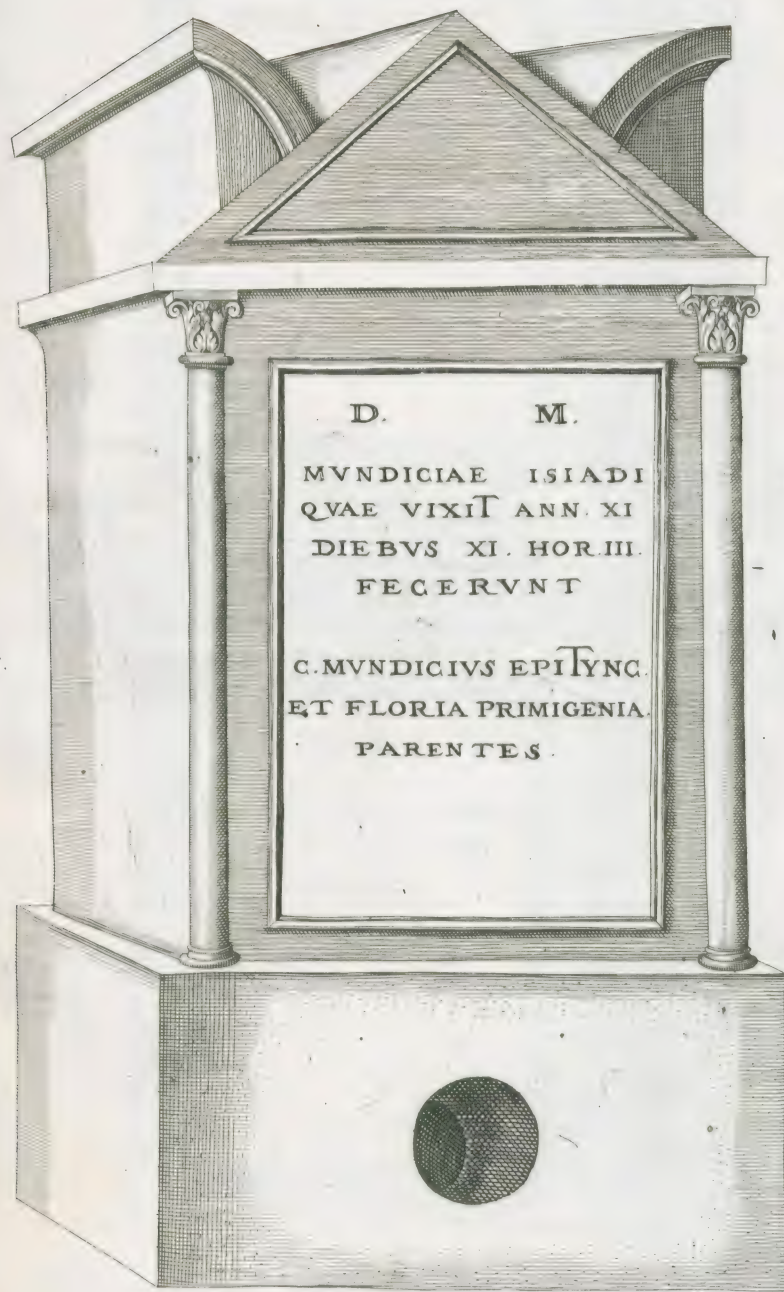 D. M.
MVNDICIAE ISIADI
QVAE VIXIT ANN. XI
DIEBVS XI. HOR. III.
FECERVNT
C. MVNDICIVS EPITYNC.
ET FLORIA PRIMIGENIA.
PARENTES.